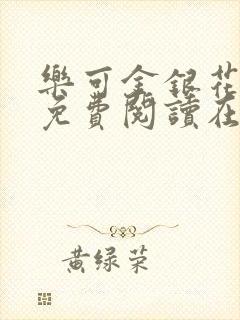 樂可金銀花
免費閱讀在
黃绿荣